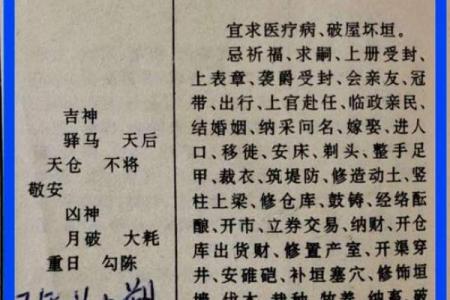 宜求医疗病、破屋坏垣。
忌祈福、求嗣、上册受封、
上表章、袭爵受封、会亲友、冠
带、出行、上官赴任、临政亲民、
结婚姻、纳采问名、嫁娶、进人
口、移徙、安床、剃头、整手足
甲、裁衣、筑堤防、修造动土、竖
柱上梁、修仓库、鼓铸、经络酝
酿、开市、立券交易、纳财、开仓
库出货财、修置产室、开渠穿
井、安碓硙、补垣塞穴、修饰垣
墙、伐木、栽种、牧养、纳畜、破
吉神
驿马 天后
天仓 不将
敬安
凶神
月破 大耗
重日 勾陈